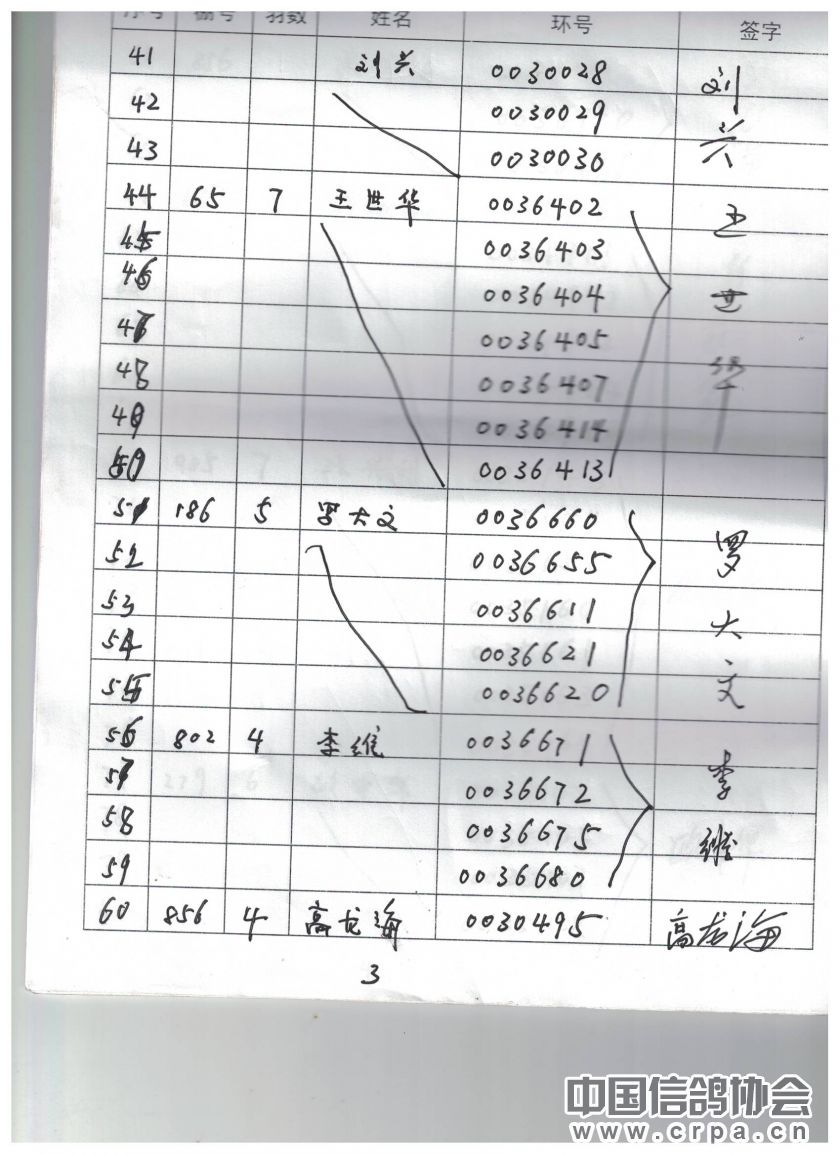 序号 棚号 羽数 姓名 环号 签字
41 刘兴 0030028 刘兴
42 0030029
43 0030030
44 65 7 王世华 0036402 王世华
45 0036403
46 0036404
47 0036405
48 0036407
49 0036414
50 0036413
51 186 5 罗大文 0036660 罗大文
52 0036655
53 0036611
54 0036621
55 0036620
56 802 4 李维 0036671 李维
57 0036672
58 0036675
59 0036680
60 856 4 高龙海 0030495 高龙海
3
中国信鸽协会
www.crpa.cn